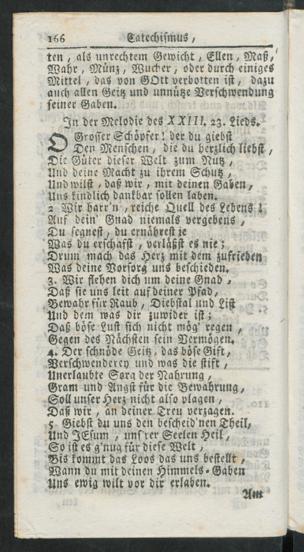 166 Catechismus,
ten, als unrechtem Gewicht, Ellen, Maß,
Wahr, Münz, Wucher, oder durch einiges
Mittel, das von GOtt verbotten ist, dazu
auch allen Geitz und unnütze Verschwendung
seiner Gaben.
In der Melodie des XXIII. 23. Lieds.
O Grosser Schöpfer! der du giebst
Den Menschen, die du herzlich liebst,
Die Güter dieser Welt zum Nutz,
Und deine Macht zu ihrem Schutz,
Und wilst, daß wir, mit deinen Gaben,
Uns kindlich dankbar sollen laben.
2 Wir harr'n, reiche Quell des Lebens!
Auf dein' Gnad niemals vergebens,
Du segnest, du ernährest je
Was du erschafst, verläßst es nie;
Drum mach das Herz mit dem zufrieden
Was deine Vorsorg uns beschieden.
3. Wir flehen dich um deine Gnad,
Daß sie uns leit auf deiner Pfad,
Bewahr für Raub, Diebstal und List
Und dem was dir zuwider ist;
Daß böse Lust sich nicht mög' regen,
Gegen des Nächsten sein Vermögen.
4. Der schnöde Geitz, das böse Gift,
Verschwenderey und was die stift,
Unerlaubte Sorg der Nahrung,
Gram und Angst für die Bewahrung,
Soll unser Herz nicht also plagen,
Daß wir, an deiner Treu verzagen.
5 Giebst du uns den bescheid'nen Theil,
Und JEsum, uns'rer Seelen Heil,
So ist es g'nug für diese Welt,
Bis kommt das Loos das uns bestellt,
Wann du mit deinen Himmels-Gaben
Uns ewig wilt vor dir erlaben.
Am